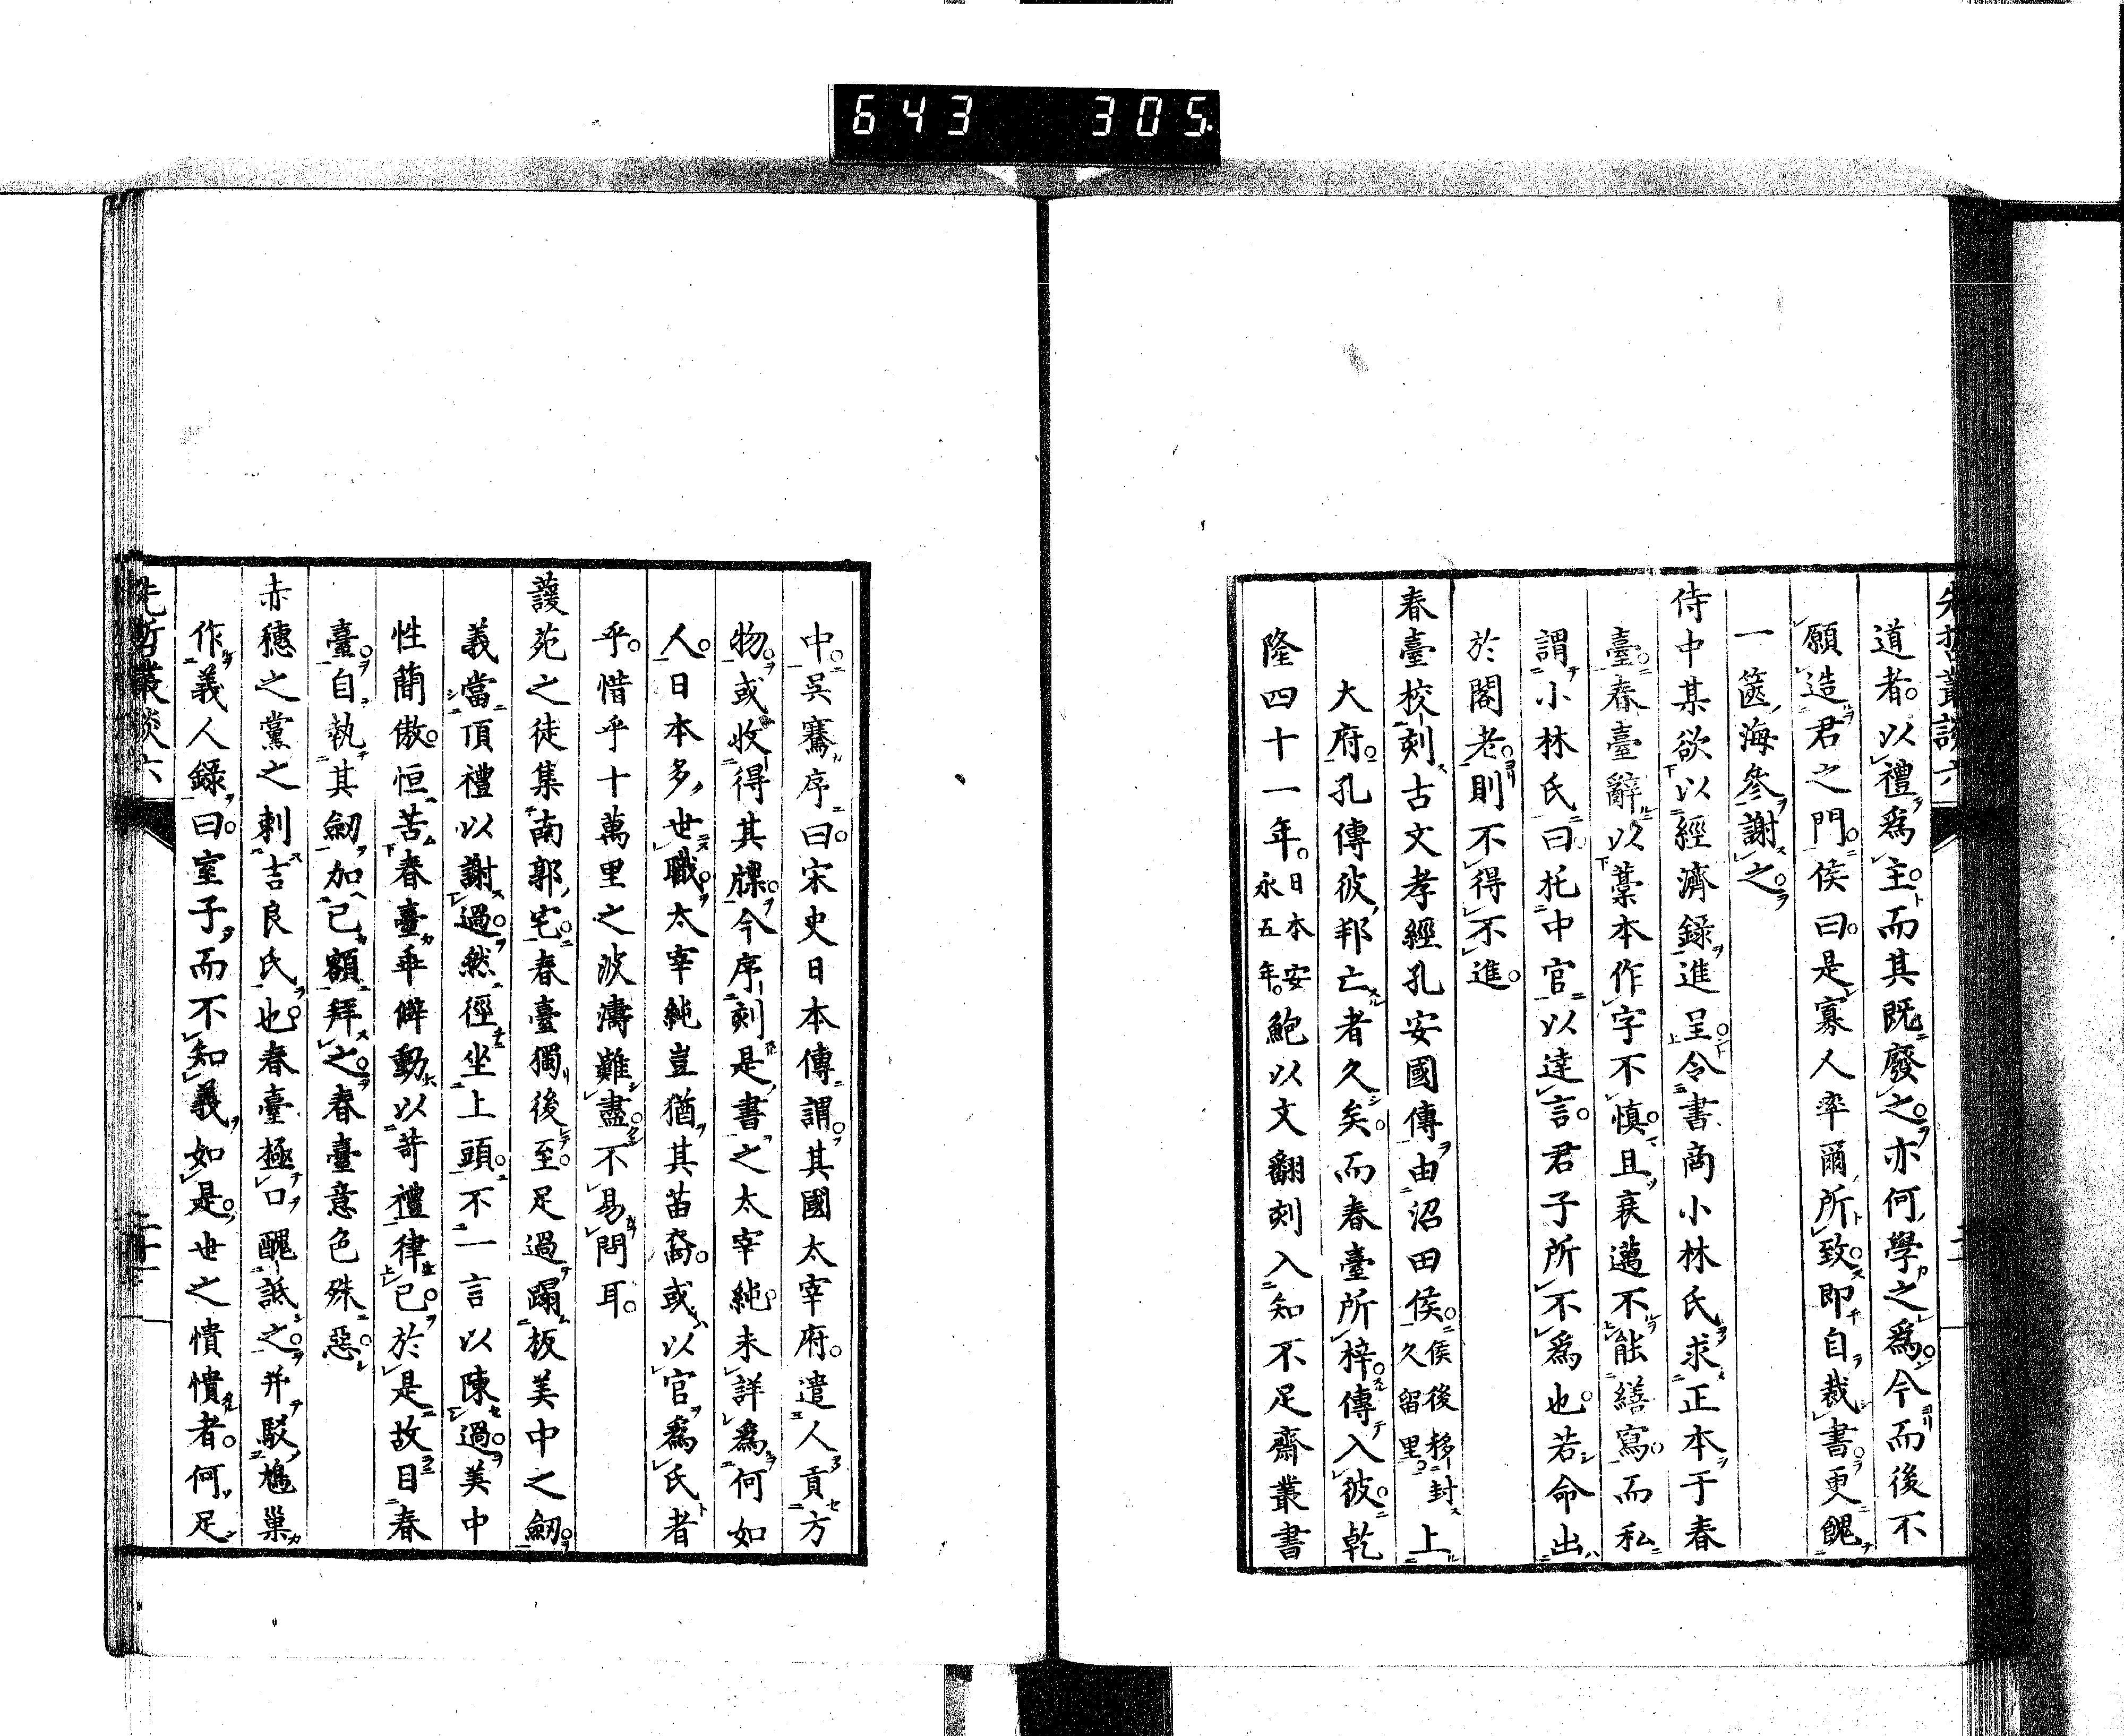 643 305
先哲叢談六
道者。以禮爲主。而其既廢之。亦何學之爲。今而後不
願造君之門。侯曰。是寡人率爾所致。即自裁書。更餽
一篋海參謝之。
侍中某欲以經濟錄進呈。令書商小林氏求正本于春
臺。春臺辭以藁本作字不慎。且衰邁不能繕寫。而私
謂小林氏曰。托中官以達言。君子所不爲也。若命出
於閣老。則不得不進。
春臺校刻古文孝經孔安國傳。由沼田侯。侯後移封久留里。上
大府。孔傳彼邦亡者久矣。而春臺所梓傳入彼。乾
隆四十一年。日本安永五年。鮑以文翻刻入知不足齋叢書
中。吳騫序曰。宋史日本傳謂。其國太宰府。遣人貢方
物。或收得其牒。今序刻是書之太宰純。未詳爲何如
人。日本多世職。太宰純豈猶其苗裔。或以官爲氏者
乎。惜乎十萬里之波濤難盡。不易問耳。
蘐苑之徒集南郭宅。春臺獨後至。足過蹋板美中之劒。
義當頂禮以謝過。然徑坐上頭。不一言以陳過。美中
性簡傲。恒苦春臺乖僻動以苛禮律己。於是故目春
臺。自執其劒加己額拜之。春臺意色殊惡。
赤穗之黨之刺吉良氏也。春臺極口醜詆之。并駁鳩巢
作義人錄。曰。室子而不知義如是。世之憒憒者。何足
先哲叢談六